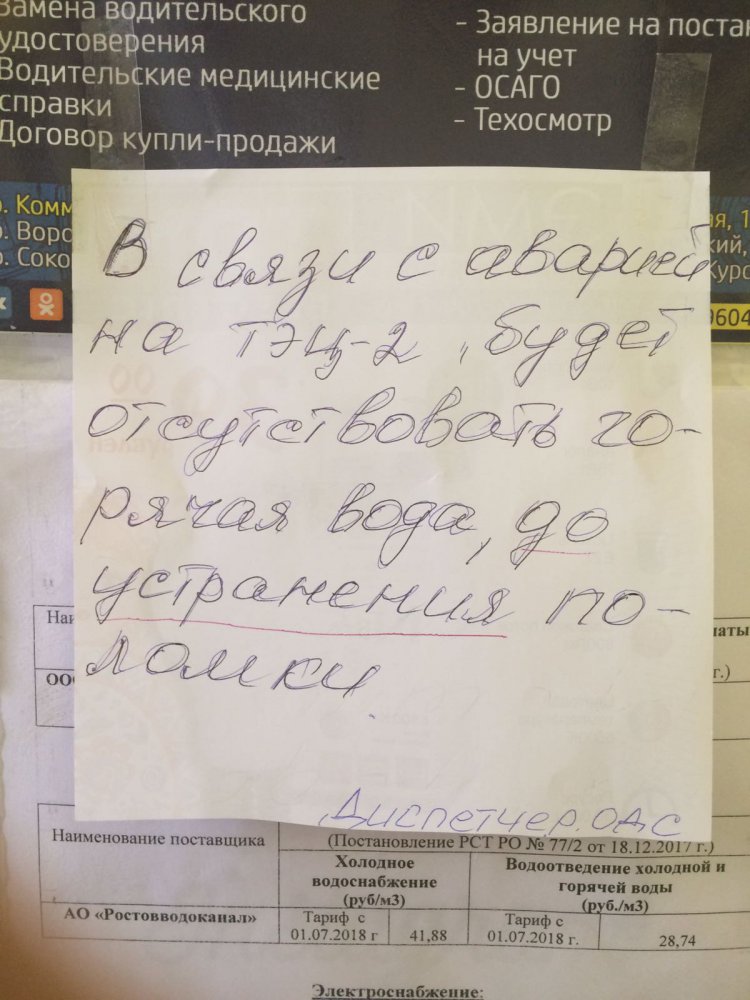 Замена водительского
удостоверения
Водительские медицинские
справки
Договор купли-продажи
- Заявление на постан
на учет
- ОСАГО
- Техосмотр
р. Комм
р. Воро
р. Соко
ая, 1
кий,
Курс
9604
В связи с аварией
на ТЭЦ-2, будет
отсутствовать го-
рячая вода, до
устранения по-
ломки.
Диспетчер ОДС
Наи
ООО
латы
г.)
Наименование поставщика
(Постановление РСТ РО № 77/2 от 18.12.2017 г.)
Холодное
водоснабжение
(руб/м3)
Водоотведение холодной и
горячей воды
(руб./м3)
АО «Ростовводоканал»
Тариф с
01.07.2018 г
41,88
Тариф с
01.07.2018 г.
28,74
Электроснабжение: